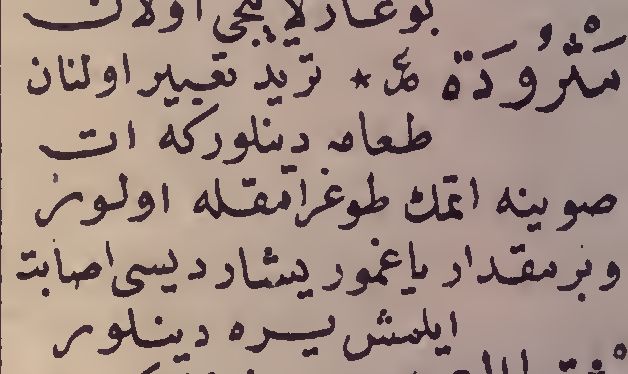 بوغازلايجى اولان
مَثْرُودَة مف * تريد تعبير اولنان
طعامه دينلوركه ات
صوينه اتمك طوغرامقله اولور
وبر مقدار ياغمور يشاردیسى اصابت
ايلمش يره دينلور